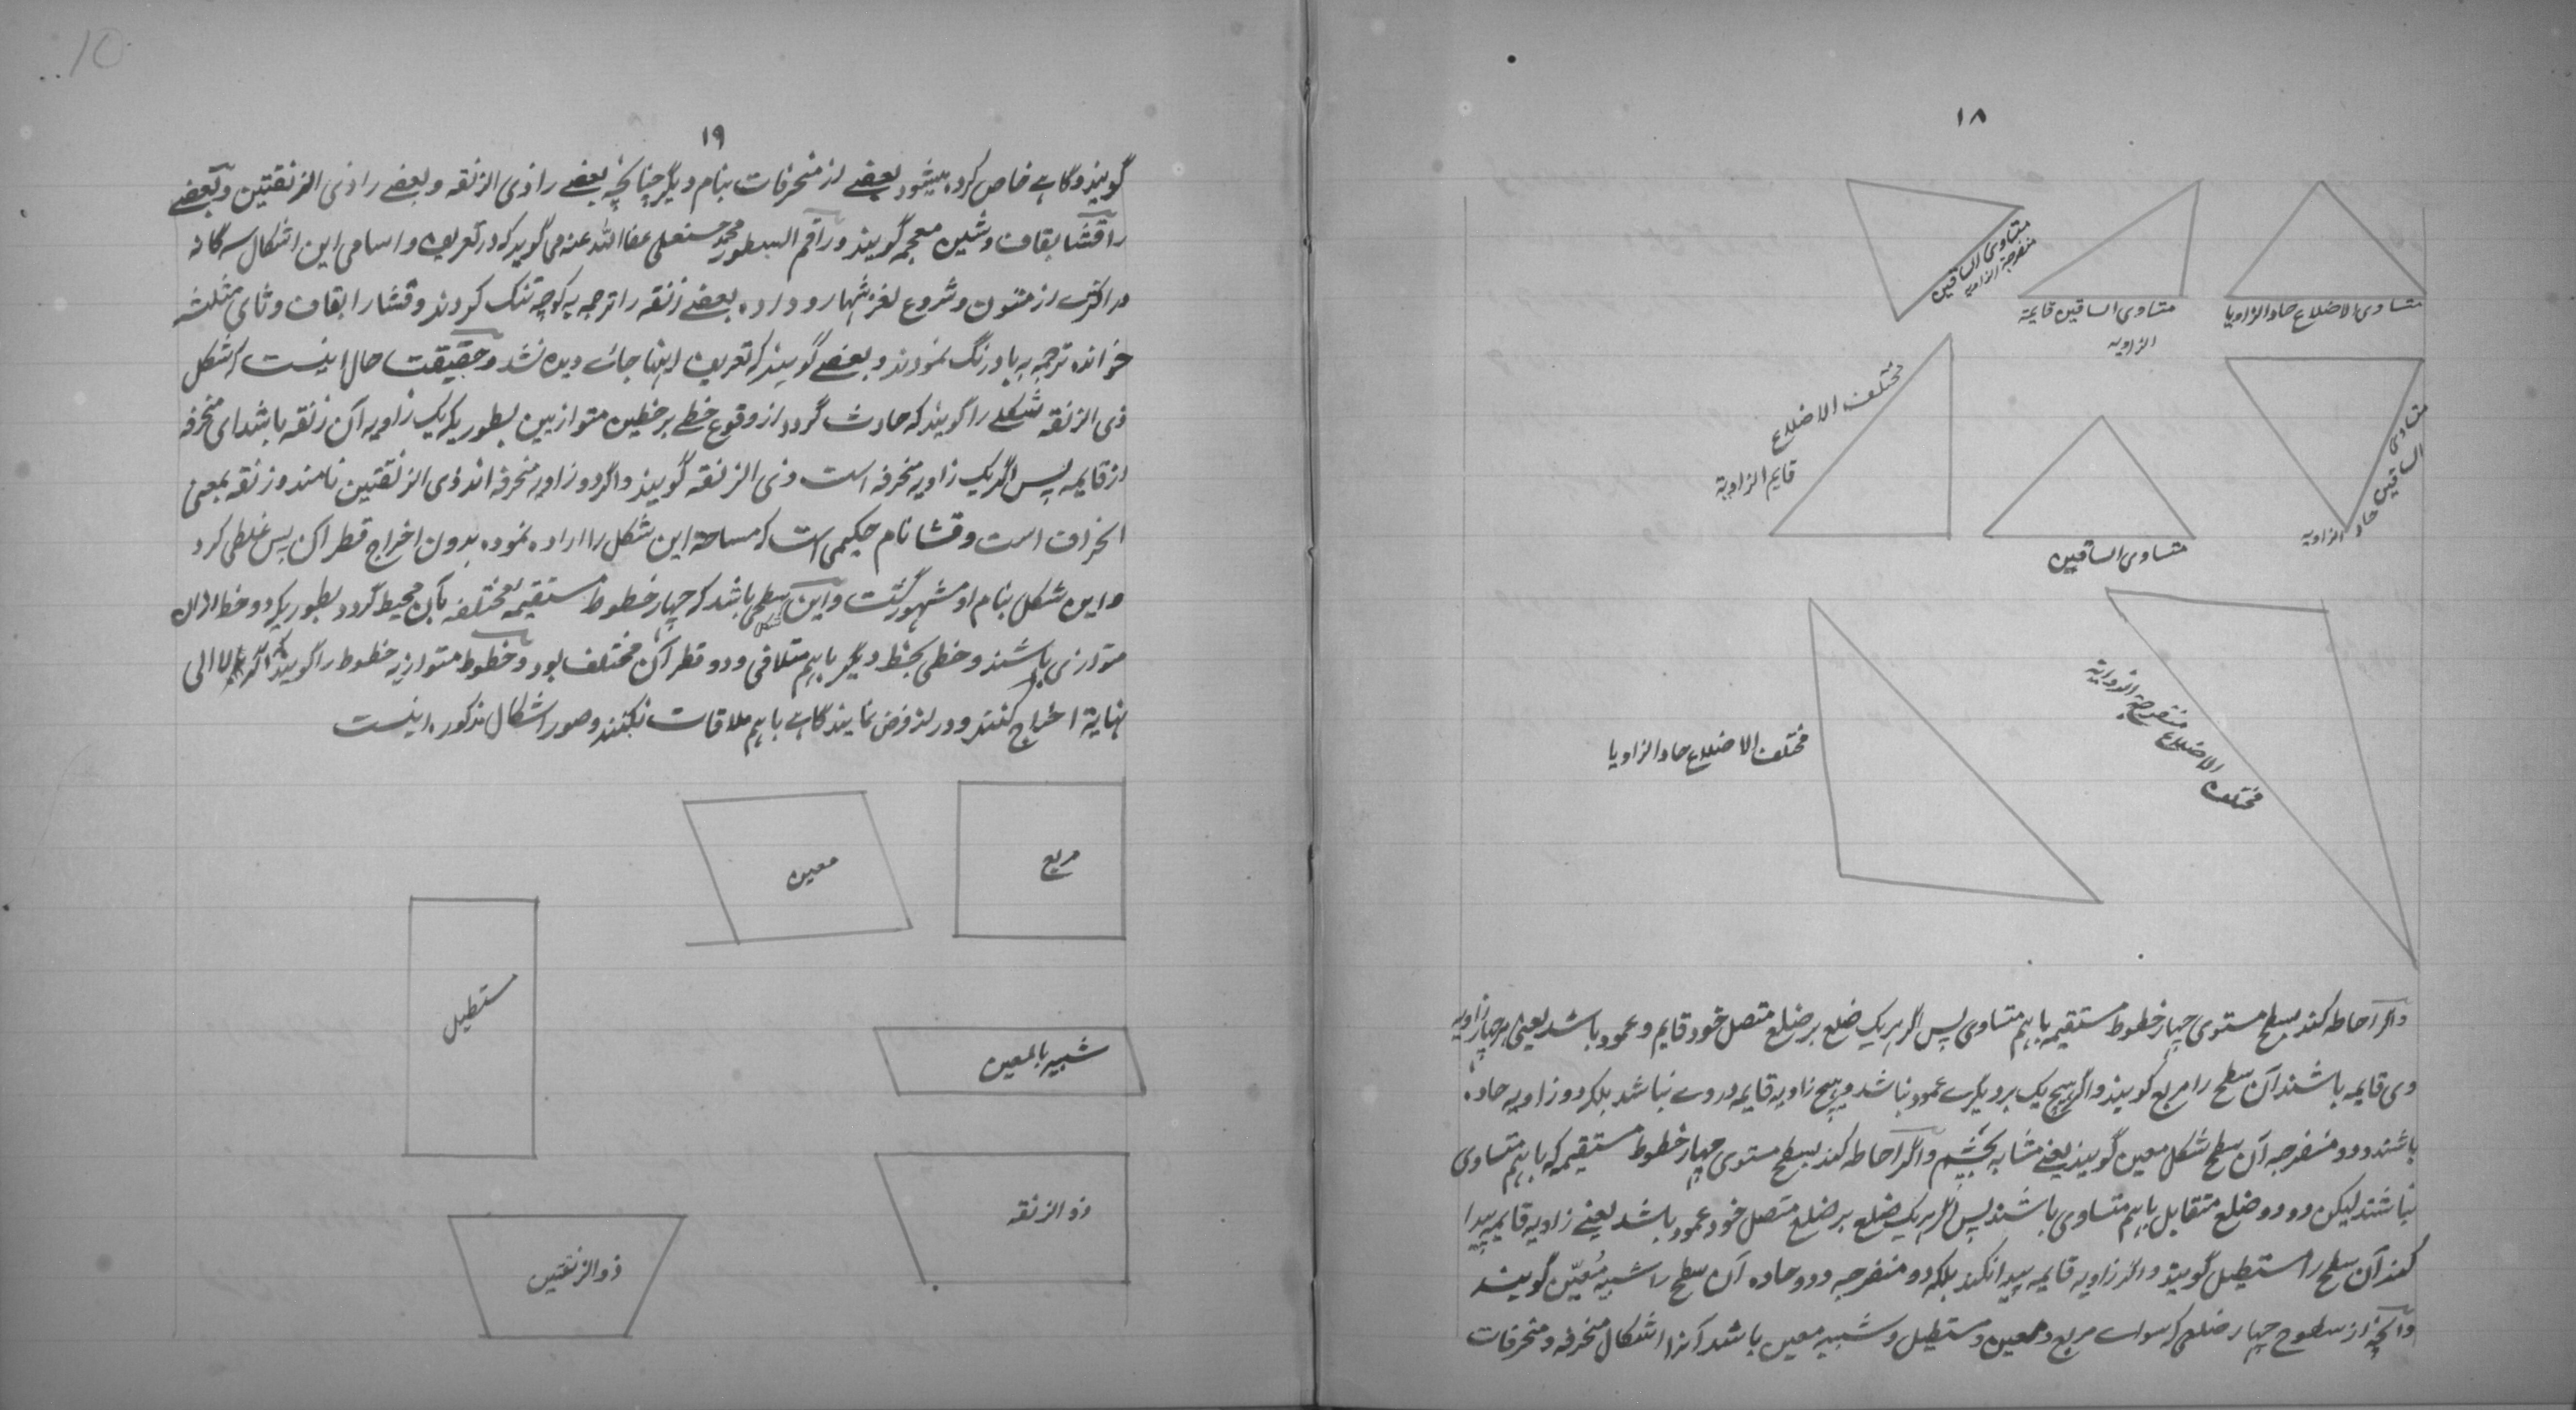 ۱۸
متساوی الاضلاع حاد الزاویا
متساوی الساقین قایمة
الزاویه
متساوی الساقین
منفرجة الزاویه
متساوی
الساقین
حاد الزاویة
متساوی الساقین
مختلف الاضلاع
قایم الزاویة
مختلف الاضلاع منفرجة الزاویة
مختلف الاضلاع حاد الزاویا
و اگر احاطه کند بسطح مستوی چهار خطوط مستقیمه باهم متساوی پس اگر هر یک ضلع بر ضلع متصل خود قایم و عمود باشد یعنی هر چهار زاویه
وی قایمه باشند آن سطح را مربع گویند و اگر هیچ یک بر دیگرے عمود نباشد و هیچ زاویه قایمه در وے نباشد بلکه دو زاویه حاده
باشند و دو منفرجه آن سطح شکل معین گویند یعنے مشابه بچشم و اگر احاطه کند بسطح مستوی چهار خطوط مستقیمه که باهم متساوی
نباشند لیکن دو دو ضلع متقابل باهم متساوی باشند پس اگر هر یک ضلع بر ضلع متصل خود عمود باشد یعنے زاویه قایمه پیدا
کند آن سطح را مستطیل گویند و اگر زاویه قایمه پیدا نکند بلکه دو منفرجه و دو حاده آن سطح را شبیه مُعیّن گویند
و آنچه از سطوح چهار ضلعی که سواے مربع و معین و مستطیل و شبیه معین باشد آنرا اشکال منحرفه و منحرفات
۱۹
گویند و گاهے خاص کرده میشود بعضے از منحرفات بنام دیگر چنانچه بعضے را ذی الزنقه و بعضے را ذی الزنقتین و بعضے
را قشا بقاف و شین معجمه گویند و راقم السطور محمد حسنعلی عفا الله عنه می گوید که در تعریف و اسامی این اشکال سه گانه
در اکثرے از متون و شروع لغزشها رو داده بعضے زنقه را ترجمه به کوچه تنگ کردند و قشا را بقاف و ثای مثلثه
خوانده ترجمه به بادرنگ نمودند و بعضے گویند که تعریف اینها جاے دیده نشد و حقیقت حال اینست که شکل
ذی الزنقه شکلے را گویند که حادث گردد از وقوع خطے بر خطین متوازیین بطوریکه یک زاویه آن زنقه باشد ای منحرفه
از قایمه پس اگر یک زاویه منحرفه است ذی الزنقه گویند و اگر دو زاویه منحرفه اند ذی الزنقتین نامند و زنقه بمعنی
انحراف است و قشا نام حکیمی است که مساحة این شکل را اراده نموده بدون اخراج قطر آن پس غلطی کرد
و این شکل بنام او مشهور گشت و این شکل سطحی باشد که چهار خطوط مستقیمه مختلفه بآن محیط گردد بطوریکه دو خط ازان
متوازی باشند و خطی بخط دیگر باهم متلاقی و دو قطر آن مختلف بود و خطوط متوازیه خطوط را گویند که اگر الی
نهایة اخراج کنند و دراز فرض نمایند گاهے باهم ملاقات نکنند و صور اشکال مذکوره اینست
مربع
معین
مستطیل
شبیه بالمعین
ذو الزنقه
ذو الزنقتین